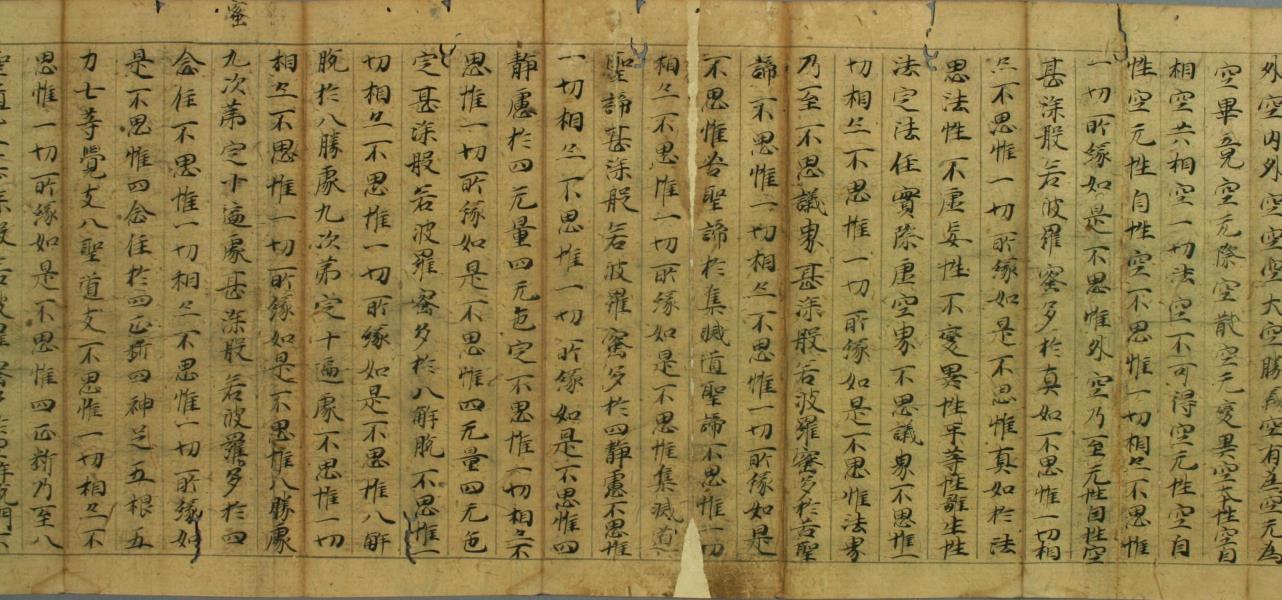 外空内外空空空大空勝義空有為空无為
空畢竟空无際空散空无變異空本性空自
相空共相空一切法空不可得空无性空自
性空无性自性空不思惟一切相亦不思惟
一切所緣如是不思惟外空乃至无性自性空
甚深般若波羅蜜多於真如不思惟一切相
亦不思惟一切所緣如是不思惟真如於法
思法性不虛妄性不變異性平等性離生性
法定法住實際虛空界不思議界不思惟一
切相亦不思惟一切所緣如是不思惟法界
乃至不思議界甚深般若波羅蜜多於苦聖
諦不思惟一切相亦不思惟一切所緣如是
不思惟苦聖諦於集滅道聖諦不思惟一切
相亦不思惟一切所緣如是不思惟集滅道
聖諦甚深般若波羅蜜多於四靜慮不思惟
一切相亦不思惟一切所緣如是不思惟四
靜慮於四无量四无色定不思惟一切相亦不
思惟一切所緣如是不思惟四无量四无色
定甚深般若波羅蜜多於八解脫不思惟一
切相亦不思惟一切所緣如是不思惟八解
脫於八勝處九次第定十遍處不思惟一切
相亦不思惟一切所緣如是不思惟八勝處
九次第定十遍處甚深般若波羅多於四
蜜
念住不思惟一切相亦不思惟一切所緣如
是不思惟四念住於四正斷四神足五根五
力七等覺支八聖道支不思惟一切相亦不
思惟一切所緣如是不思惟四正斷乃至八